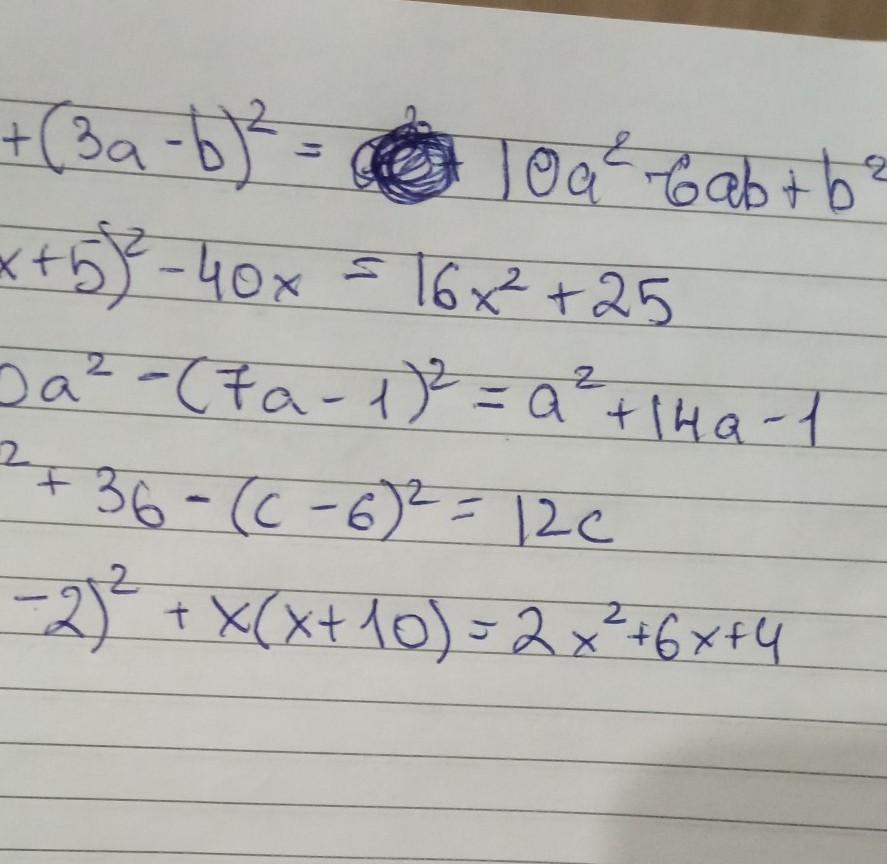 +(3a-b)² = 10a² -6ab+b²
x+5)² - 40x = 16x² + 25
0a² - (7a - 1)² = a² + 14a - 1
² + 36 - (c - 6)² = 12c
-2)² + x(x+10) = 2x²+6x+4